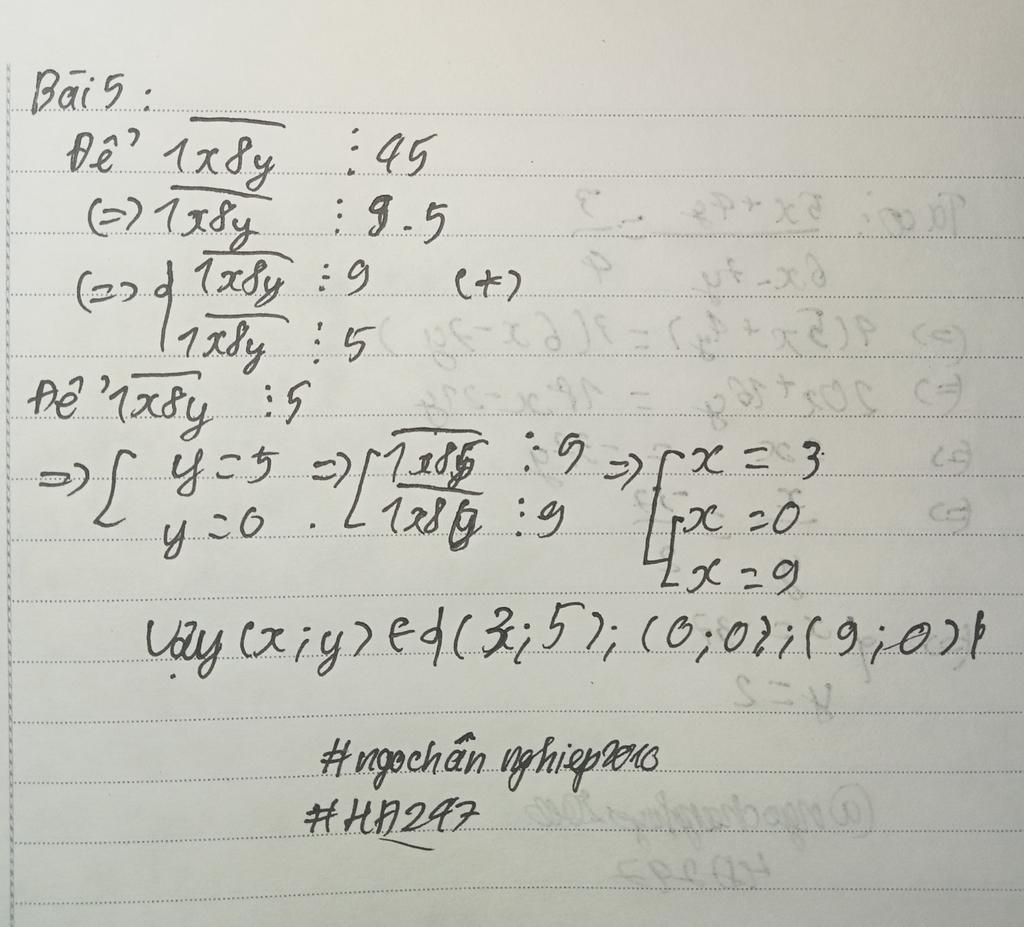 Bài 5 :
Để 1x8y ⋮ 45
(=) 1x8y ⋮ 9 . 5
(=> { 1x8y ⋮ 9 (*)
1x8y ⋮ 5
Để 1x8y ⋮ 5
=> [ y = 5 => [ 1x85 ⋮ 9 => [ x = 3
y = 0 . 1x80 ⋮ 9 [ x = 0
x = 9
Vậy (x ; y) ∈ { (3 ; 5) ; (0 ; 0) ; (9 ; 0) }
#ngochân nghiep2010
#HA247